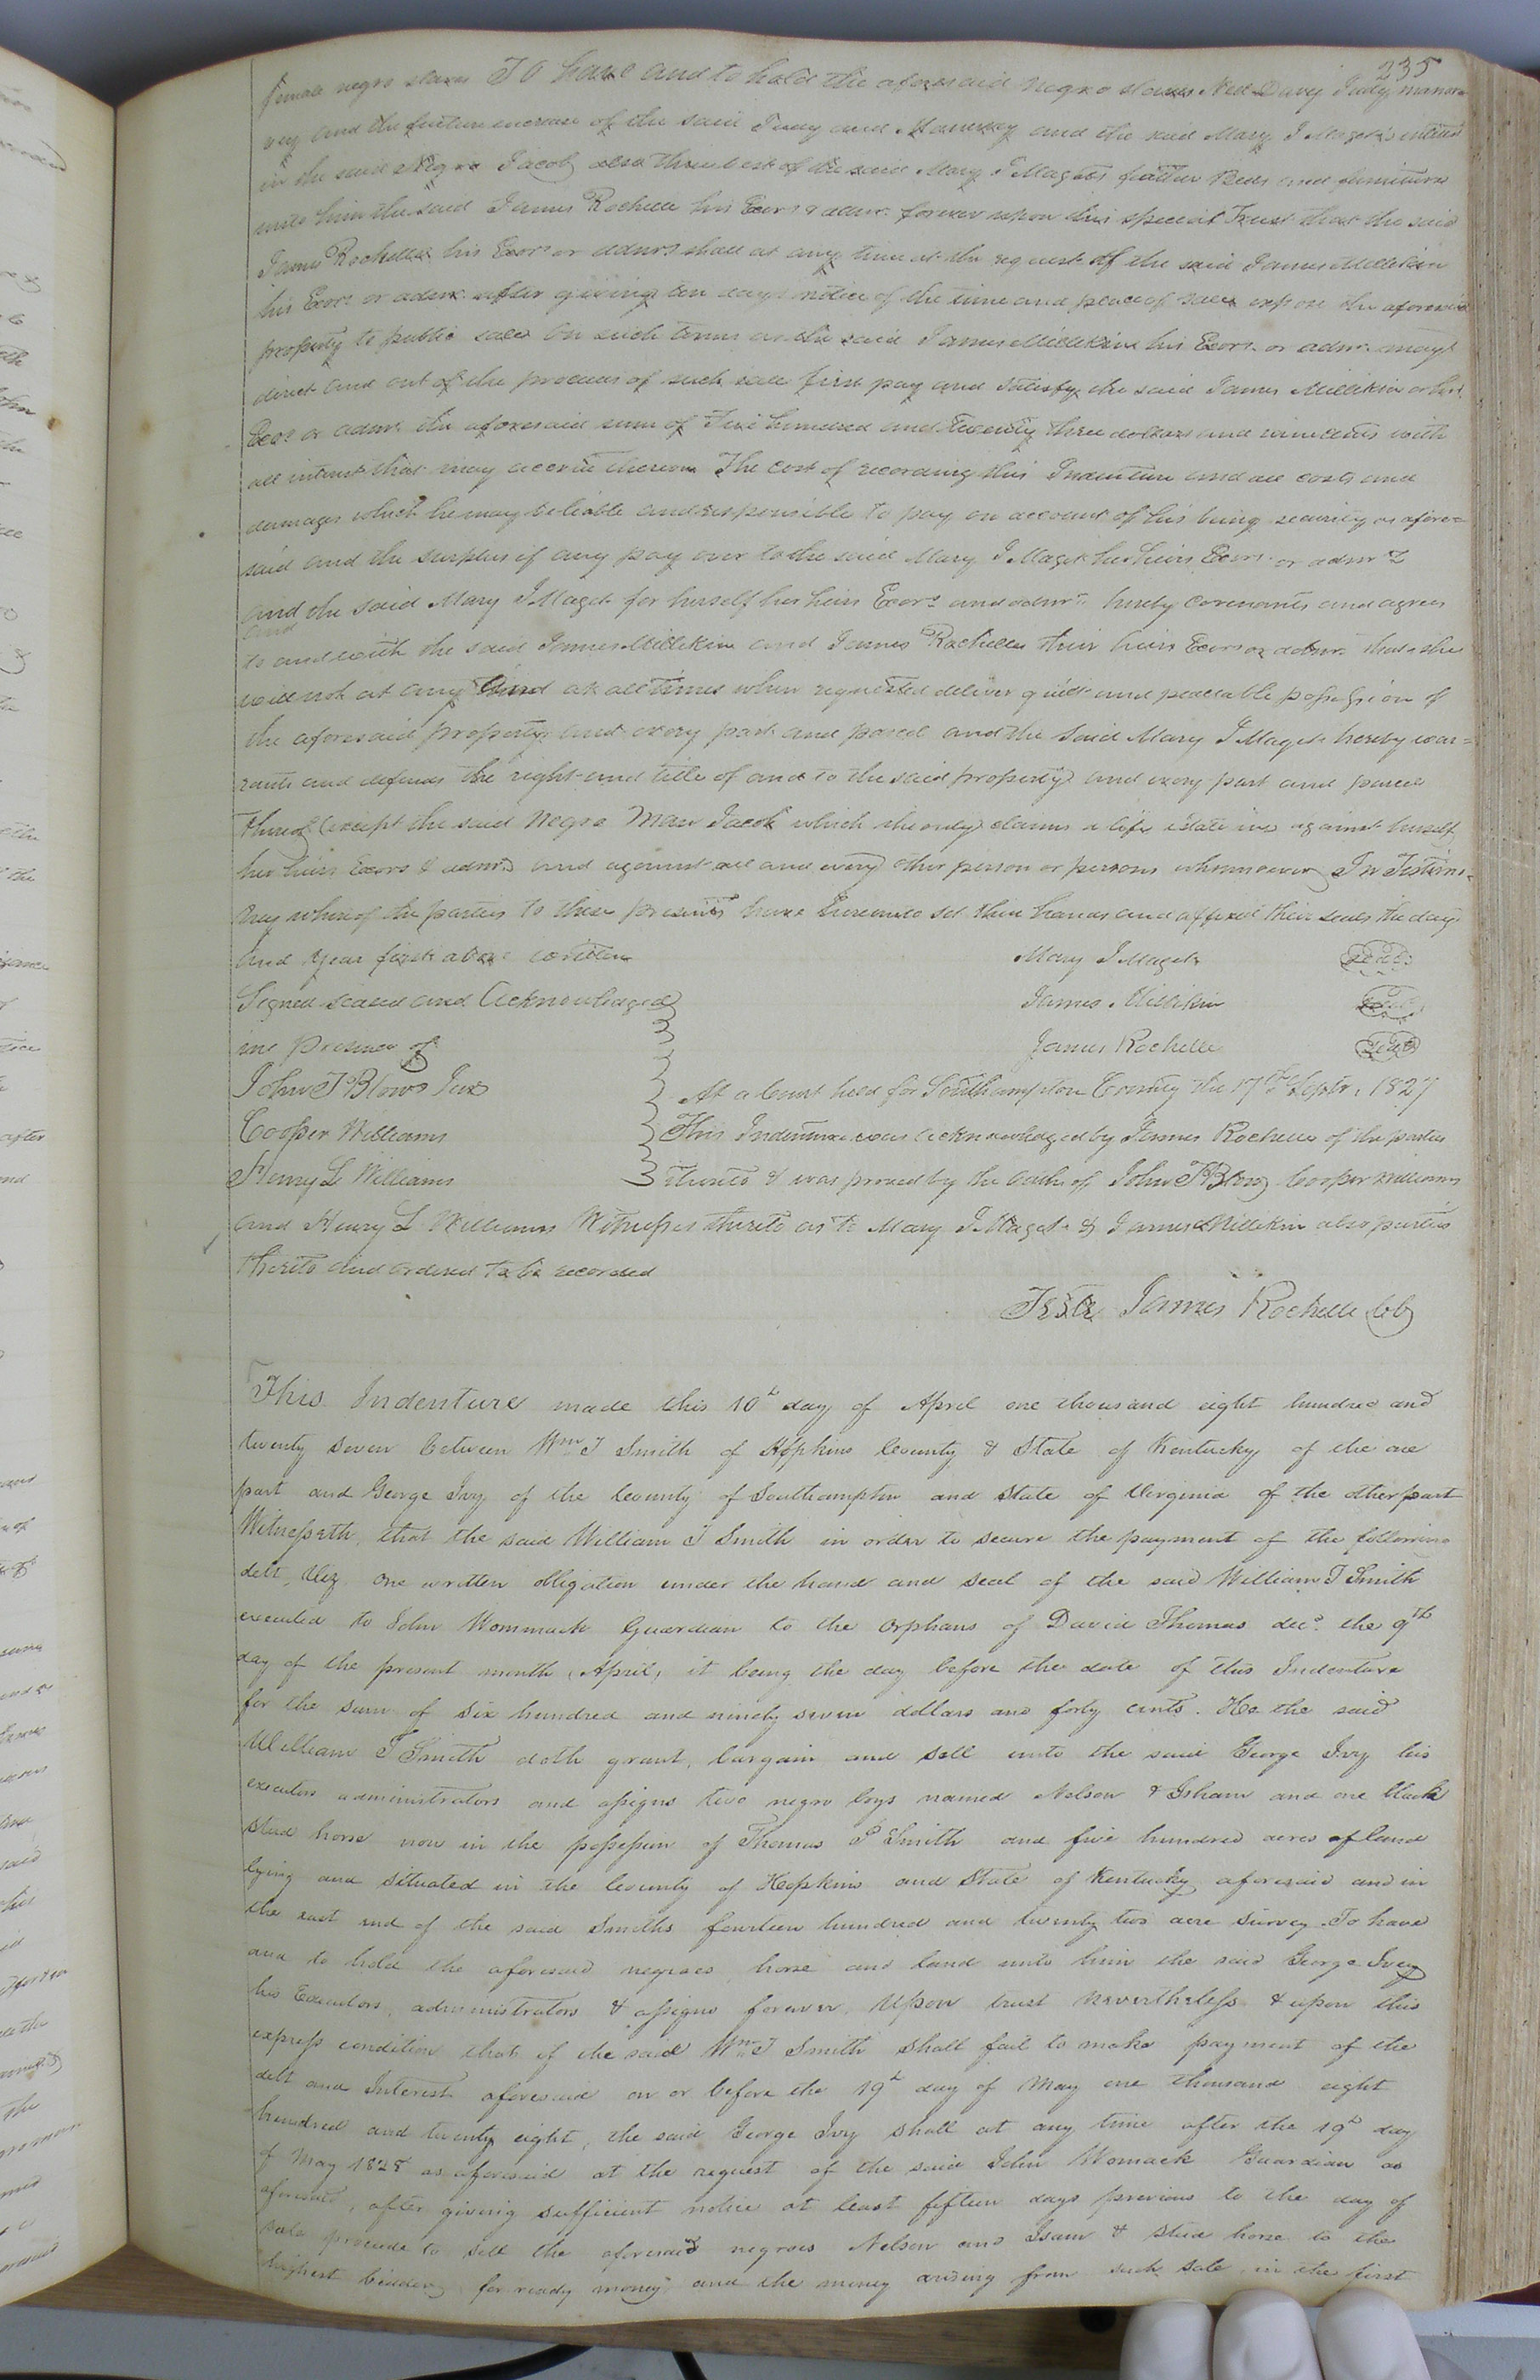 235
female negro slaves To have and to hold the aforesaid Negro slaves Ned Davy Judy
and the future increase of the said Judy and and the said Mary J Magets interest
in the said Negro Jacob also three best of the said Mary J Magets feather Beds and furniture
unto him the said James Rochelle his Exors & admr. forever upon this special Trust that the said
James Rochelle his Exors or admrs shall at any time at the request of the said James Millikin
his Exors or admr. after giving ten days notice of the time and place of sale expose the aforesaid
property to public sale on such terms as the said James Millikin his Exors. or admr. may
direct and out of the proceeds of such sale first pay and satisfy the said James Millikin or his
Exors or admr. the aforesaid sum of hundred and twenty three dollars and nine cents with
all interest that may accrue thereon The cost of recording this Indenture and all costs and
damages which he may be liable and responsible to pay on account of his being security as afore=
said and the surplus if any pay over to the said Mary J Maget her heirs Exors. or admrs
and the said Mary J Maget for herself her heirs Exors and admrs. hereby covenants and agrees
and
to and with the said James Millikin and James Rochelle their heirs Exors or admr. that she
will not at any at all times when requested deliver quiet and peaceable possession of
the aforesaid property and every part and parcel and the said Mary J Maget hereby war=
rants and defends the right and title of and to the said property and every part and parcel
thereof (except the said Negro Man Jacob which she only claims a life estate in) against herself
her heirs Exors & admrs and against all and every other person or persons whomsoever In Testimo=
ny whereof the parties to these presents have hereunto set their hands and affixed their seals the day
and year first above written Mary J Maget seal
Signed sealed and Acknowledged James Millikin seal
in presence of James Rochelle seal
John T Blow Jur At a Court held for Southampton County the 17th Septr. 1827
Cooper Williams This Indenture was acknowledged by James Rochelle of the parties
Henry L Williams thereto & was proved by the oaths of John T Blow Cooper Williams
and Henry L Williams Witnesses thereto as to Mary J Maget & James Millikin also parties
thereto and ordered to be recorded
Teste James Rochelle CC
This Indenture made this 10th day of April one thousand eight hundred and
twenty seven between Wm T Smith of Hopkins County & State of Kentucky of the one
part and George Ivy of the County of Southampton and State of Virginia of the other part
Witnesseth, that the said William T Smith in order to secure the payment of the following
debt, Viz. one written obligation under the hand and seal of the said William T Smith
executed to John Wommack Guardian to the Orphans of David Thomas decd. the 9th
day of the present month (April) it being the day before the date of this Indenture
for the sum of six hundred and ninety seven dollars and forty cents. He the said
William T Smith doth grant, bargain and sell unto the said George Ivy his
executors administrators and assigns two negro boys named Nelson & Isham and one black
stud horse now in the possession of Thomas P Smith and five hundred acres of land
lying and situated in the County of Hopkins and State of Kentucky aforesaid and in
the east end of the said Smiths fourteen hundred and twenty two acre survey. To have
and to hold the aforesaid negroes, horse and land unto him the said George Ivey
his Executors, administrators & assigns forever. Upon trust nevertheless & upon this
express condition that if the said Wm T Smith shall fail to make payment of the
debt and Interest aforesaid on or before the 19th day of May one thousand eight
hundred and twenty eight, the said George Ivy shall at any time after the 19th day
of May 1828 as aforesaid at the request of the said John Womack Guardian as
aforesaid, after giving sufficient notice at least fifteen days previous to the day of
sale procede to sell the aforesaid negroes Nelson and Isam & stud horse to the
highest bidder for ready money and the money arising from such sale in the first